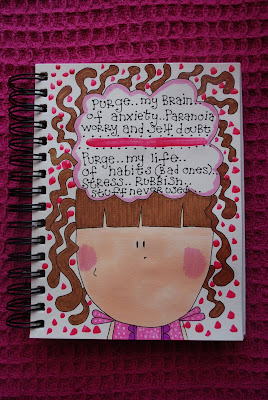 PURGE...my BRAIN...
of anxiety..PaRaNoia
WORRY and Self doubt
PURGE..my life...
of HaBits (Bad ones)..
StRESS.. RUBBISH..
StUff NEVER USED..